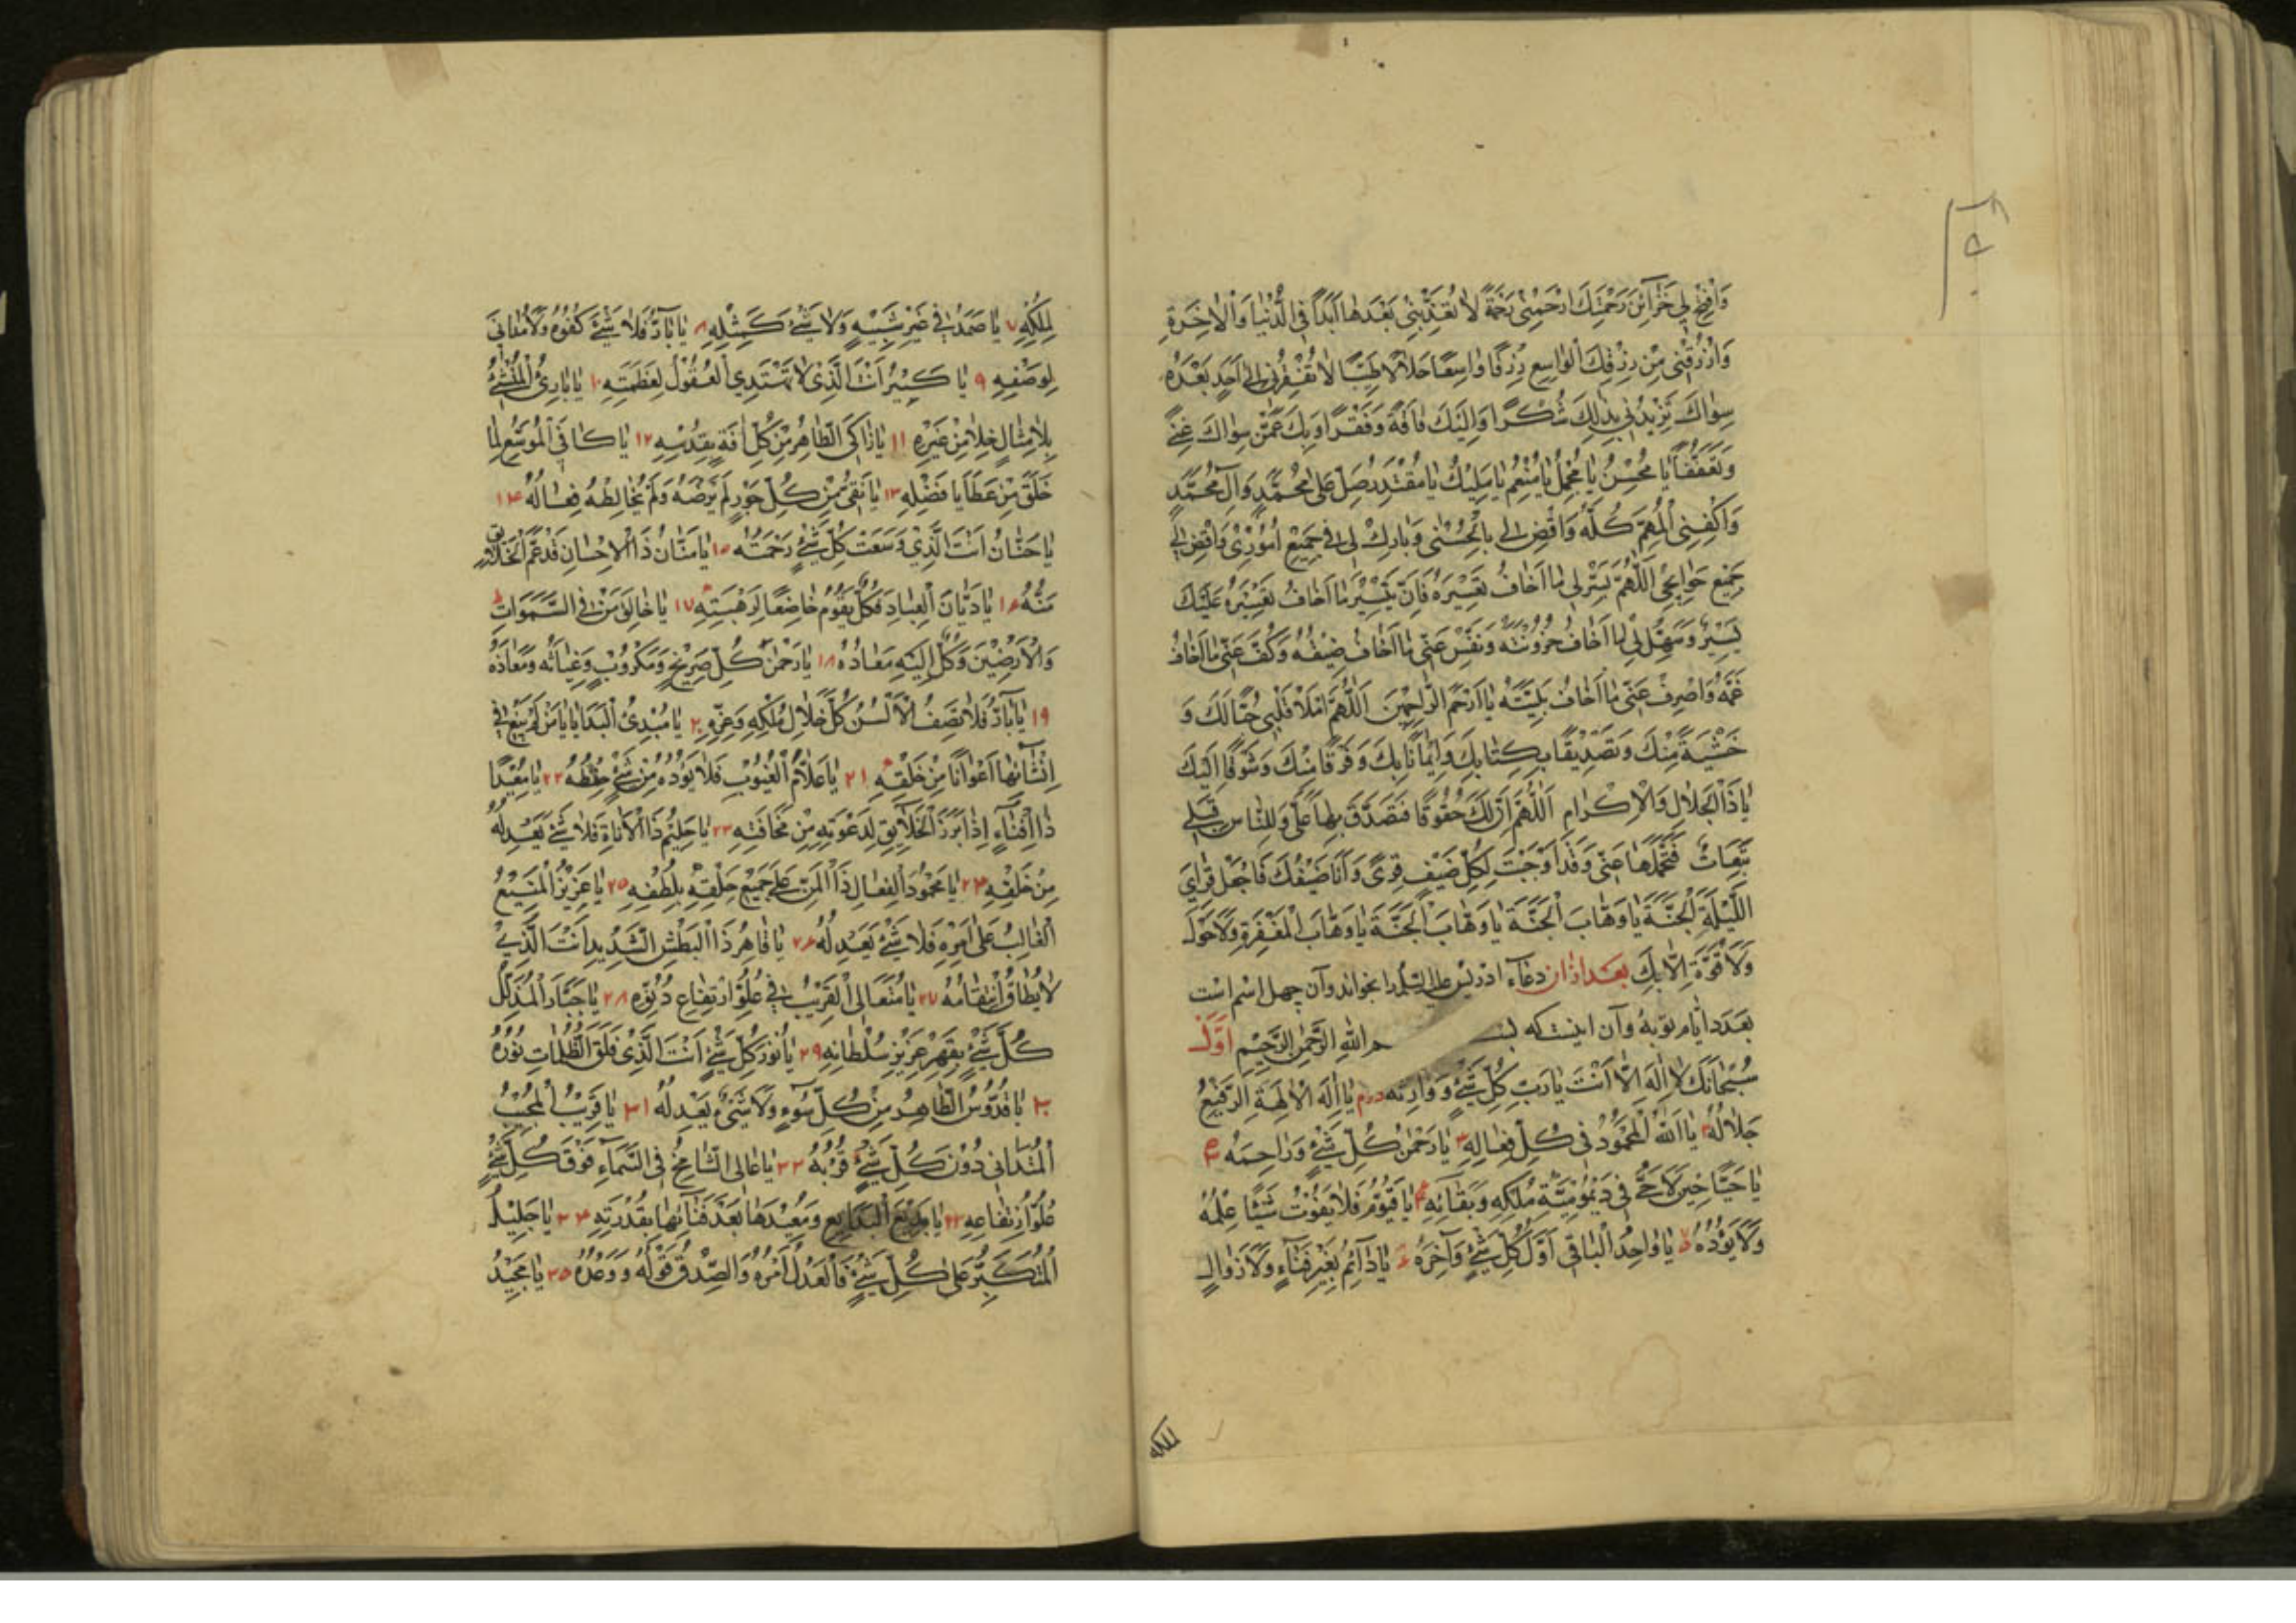 وَافْتَحْ لِي خَزَآئِنَ رَحْمَتِكَ ارْحَمْنِي رَحْمَةً لَا تُعَذِّبُنِي بَعْدَهَا اَبَدًا فِي الدُّنْيَا وَالْاٰخِرَةِ
وَارْزُقْنِي مِنْ رِزْقِكَ الْوَاسِعِ رِزْقًا وَاسِعًا حَلَالًا طَيِّبًا لَا تُفْقِرُنِي اِلَى اَحَدٍ بَعْدَهُ
سِوَاكَ تَزِيدُنِي بِذٰلِكَ شُكْرًا وَاِلَيْكَ فَاقَةً وَفَقْرًا وَبِكَ عَمَّنْ سِوَاكَ غِنًى
وَتَعَفُّفًا يَا مُحْسِنُ يَا مُجْمِلُ يَا مُنْعِمُ يَا مَلِيكُ يَا مُقْتَدِرُ صَلِّ عَلَى مُحَمَّدٍ وَآلِ مُحَمَّدٍ
وَاكْفِنِي الْمُهِمَّ كُلَّهُ وَاقْضِ لِي بِالْحُسْنٰى وَبَارِكْ لِي فِي جَمِيعِ اُمُورِي وَاقْضِ لِي
جَمِيعَ حَوَائِجِي اَللّٰهُمَّ يَسِّرْ لِي مَا اَخَافُ تَعْسِيرَهُ فَاِنَّ تَيْسِيرَ مَا اَخَافُ تَعْسِيرَهُ عَلَيْكَ
يَسِيرٌ وَسَهِّلْ لِي مَا اَخَافُ حُزُونَتَهُ وَنَفِّسْ عَنِّي مَا اَخَافُ ضِيقَهُ وَكُفَّ عَنِّي مَا اَخَافُ
غَمَّهُ وَاصْرِفْ عَنِّي مَا اَخَافُ بَلِيَّتَهُ يَا اَرْحَمَ الرَّاحِمِينَ اَللّٰهُمَّ امْلَاْ قَلْبِي حُبًّا لَكَ وَ
خَشْيَةً مِنْكَ وَتَصْدِيقًا بِكِتَابِكَ وَاِيمَانًا بِكَ وَفَرَقًا مِنْكَ وَشَوْقًا اِلَيْكَ
يَا ذَا الْجَلَالِ وَالْاِكْرَامِ اَللّٰهُمَّ اِنَّ لَكَ حُقُوقًا فَتَصَدَّقْ بِهَا عَلَيَّ وَلِلنَّاسِ قِبَلِي
تَبِعَاتٌ فَتَحَمَّلْهَا عَنِّي وَقَدْ اَوْجَبْتَ لِكُلِّ ضَيْفٍ قِرًى وَاَنَا ضَيْفُكَ فَاجْعَلْ قِرَايَ
اللَّيْلَةَ الْجَنَّةَ يَا وَهَّابَ الْجَنَّةِ يَا وَهَّابَ الْجَنَّةَ يَا وَهَّابَ الْمَغْفِرَةِ وَلَا حَوْلَ
وَلَا قُوَّةَ اِلَّا بِكَ بعد ازان دعآء ادریس علیه السلام را بخواند و آن چهل اسم است
بعدد ایام توبهٔ و آن اینست که بسم الله الرَّحْمٰنِ الرَّحِيمِ اَوَّل
سُبْحَانَكَ لَا اِلٰهَ اِلَّا اَنْتَ يَا رَبَّ كُلِّ شَيْءٍ وَوَارِثَهُ دوم يَا اِلٰهَ الْاٰلِهَةِ الرَّفِيعُ
جَلَالُهُ ٣ يَا اَللهُ الْمَحْمُودُ فِي كُلِّ فِعَالِهِ يَا رَحْمٰنَ كُلِّ شَيْءٍ وَرَاحِمَهُ
يَا حَيًّا حِينَ لَا حَيَّ فِي دَيْمُومِيَّةِ مُلْكِهِ وَبَقَائِهِ يَا قَيُّومُ فَلَا يَفُوتُ شَيْئًا عِلْمُهُ
وَلَا يَؤُدُهُ يَا وَاحِدُ الْبَاقِي اَوَّلَ كُلِّ شَيْءٍ وَآخِرَهُ يَا دَآئِمُ بِغَيْرِ فَنَآءٍ وَلَا زَوَالٍ
لملكه
لِمُلْكِهِ ٧ يَا صَمَدُ فِي غَيْرِ شَبِيهٍ وَلَا شَيْءَ كَمِثْلِهِ ٨ يَا بَآرُّ فَلَا شَيْءَ كُفُوُهُ وَلَا مُدَانِيَ
لِوَصْفِهِ ٩ يَا كَبِيرُ اَنْتَ الَّذِي لَا تَهْتَدِي الْعُقُولُ لِعَظَمَتِهِ ١٠ يَا بَارِئُ الْمُنْشِئُ
بِلَا مِثَالٍ خَلَا مِنْ غَيْرِهِ ١١ يَا زَاكِي الطَّاهِرُ مِنْ كُلِّ آفَةٍ بِقُدْسِهِ ١٢ يَا كَافِيَ الْمُوَسِّعُ لِمَا
خَلَقَ مِنْ عَطَايَا فَضْلِهِ ١٣ يَا نَقِيُّ مِنْ كُلِّ جَوْرٍ لَمْ يَرْضَهُ وَلَمْ يُخَالِطْهُ فِعَالُهُ ١٤
يَا حَنَّانُ اَنْتَ الَّذِي وَسِعَتْ كُلَّ شَيْءٍ رَحْمَتُهُ ١٥ يَا مَنَّانُ ذَا الْاِحْسَانِ قَدْ عَمَّ الْخَلَائِقَ
مَنُّهُ ١٦ يَا دَيَّانَ الْعِبَادِ فَكُلٌّ يَقُومُ خَاضِعًا لِرَهْبَتِهِ ١٧ يَا خَالِقَ مَنْ فِي السَّمٰوَاتِ
وَالْاَرَضِينَ وَكُلٌّ اِلَيْهِ مَعَادُهُ ١٨ يَا رَحْمٰنَ كُلِّ صَرِيخٍ وَمَكْرُوبٍ وَغِيَاثَهُ وَمَعَاذَهُ
١٩ يَا بَآرُّ فَلَا تَصِفُ الْاَلْسُنُ كُلَّ جَلَالِ مُلْكِهِ وَعِزِّهِ ٢٠ يَا مُبْدِئَ الْبَدَايَا يَا مَنْ لَمْ يَبْغِ فِي
اِنْشَآئِهَا اَعْوَانًا مِنْ خَلْقِهِ ٢١ يَا عَلَّامَ الْغُيُوبِ فَلَا يَؤُدُهُ مِنْ شَيْءٍ حِفْظُهُ ٢٢ يَا مُعِيدًا
ذَا اَفْنَآءٍ اِذَا بَرَزَ الْخَلَآئِقُ لِدَعْوَتِهِ مِنْ مَخَافَتِهِ ٢٣ يَا حَلِيمُ ذَا الْاَنَاةِ فَلَا شَيْءَ يَعْدِلُهُ
مِنْ خَلْقِهِ ٢٤ يَا مَحْمُودَ الْفِعَالِ ذَا الْمَنِّ عَلَى جَمِيعِ خَلْقِهِ بِلُطْفِهِ ٢٥ يَا عَزِيزُ الْمَنِيعُ
الْغَالِبُ عَلَى اَمْرِهِ فَلَا شَيْءَ يَعْدِلُهُ ٢٦ يَا قَاهِرُ ذَا الْبَطْشِ الشَّدِيدِ اَنْتَ الَّذِي
لَا يُطَاقُ انْتِقَامُهُ ٢٧ يَا مُتَعَالِيَ الْقَرِيبُ فِي عُلُوِّ ارْتِفَاعِ دُنُوِّهِ ٢٨ يَا جَبَّارُ الْمُذَلِّلُ
كُلَّ شَيْءٍ بِقَهْرِ عَزِيزِ سُلْطَانِهِ ٢٩ يَا نُورَ كُلِّ شَيْءٍ اَنْتَ الَّذِي فَلَقَ الظُّلُمَاتِ نُورُهُ
٣٠ يَا قُدُّوسُ الطَّاهِرُ مِنْ كُلِّ سُوءٍ وَلَا شَيْءَ يَعْدِلُهُ ٣١ يَا قَرِيبُ الْمُجِيبُ
الْمُتَدَانِي دُونَ كُلِّ شَيْءٍ قُرْبُهُ ٣٢ يَا عَالِيَ الشَّامِخُ فِي السَّمَآءِ فَوْقَ كُلِّ شَيْءٍ
عُلُوُّ ارْتِفَاعِهِ ٣٣ يَا بَدِيعَ الْبَدَايِعِ وَمُعِيدَهَا بَعْدَ فَنَآئِهَا بِقُدْرَتِهِ ٣٤ يَا جَلِيلُ
الْمُتَكَبِّرُ عَلَى كُلِّ شَيْءٍ فَالْعَدْلُ اَمْرُهُ وَالصِّدْقُ قَوْلُهُ وَوَعْدُهُ ٣٥ يَا مَجِيدُ